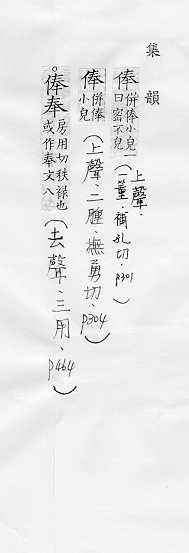 集韻
俸 倂俸小皃一曰密不皃 (上聲．一董．補孔切．p301)
俸 倂俸小皃 (上聲．二腫．撫勇切．p304)
。俸奉 房用切秩禄也或作奉文八 (去聲．三用．p464)